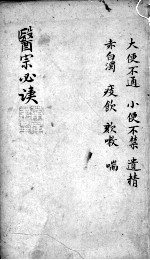 大便不通 小便不禁 遺精
赤白濁 痰飲 咳嗽 喘
醫宗必讀